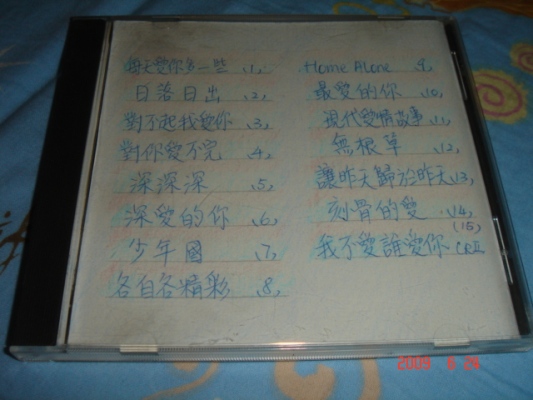 每天愛你多一些 、1、
日落日出 、2、
對不起我愛你 、3、
對你愛不完 、4、
深深深 、5、
深愛的你 、6、
少年國 、7、
各自各精彩 、8、
Home Alone 、9、
最愛的你 、10、
現代愛情故事 、11、
無根草 、12、
讓昨天歸於昨天 、13、
刻骨的愛 、14、
(15)
我不愛誰愛你
2009 6 24